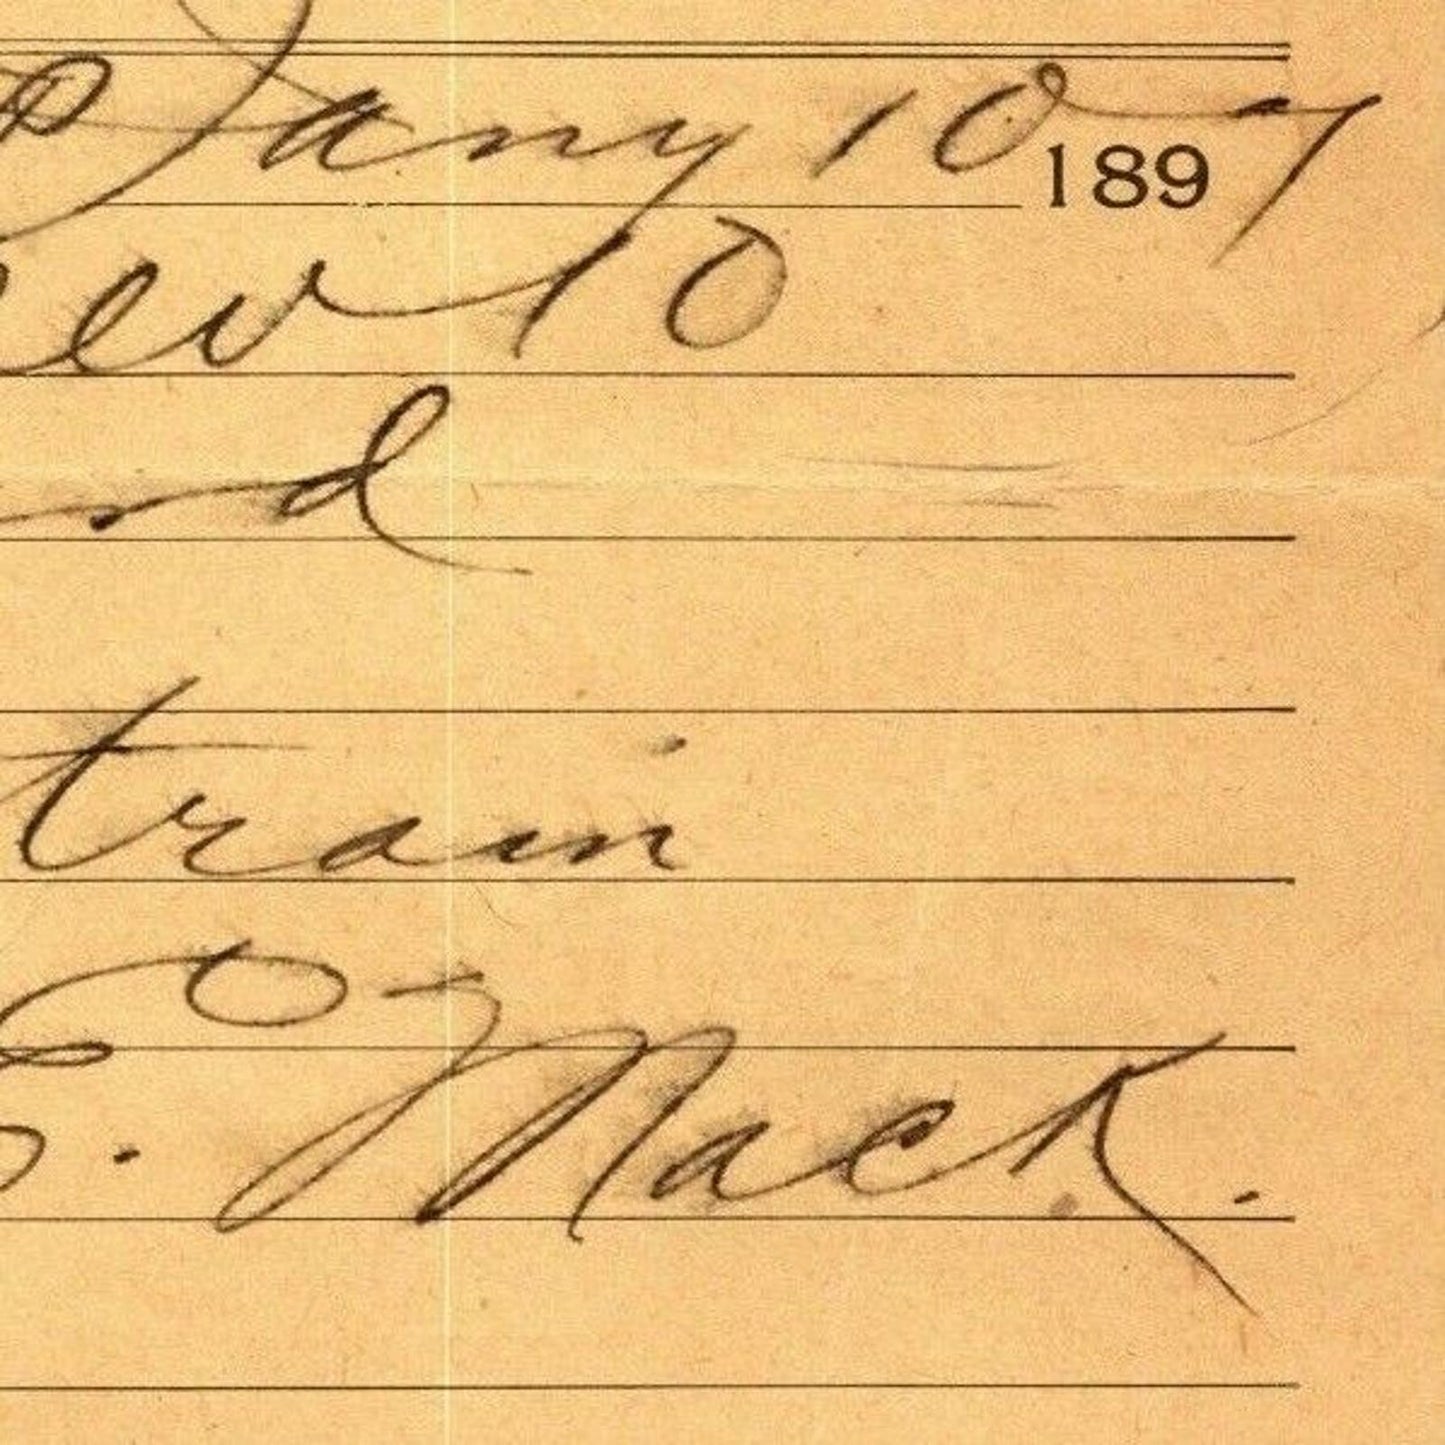 Jany 10 1897
ew 10
nd
train
E. O. Mack.